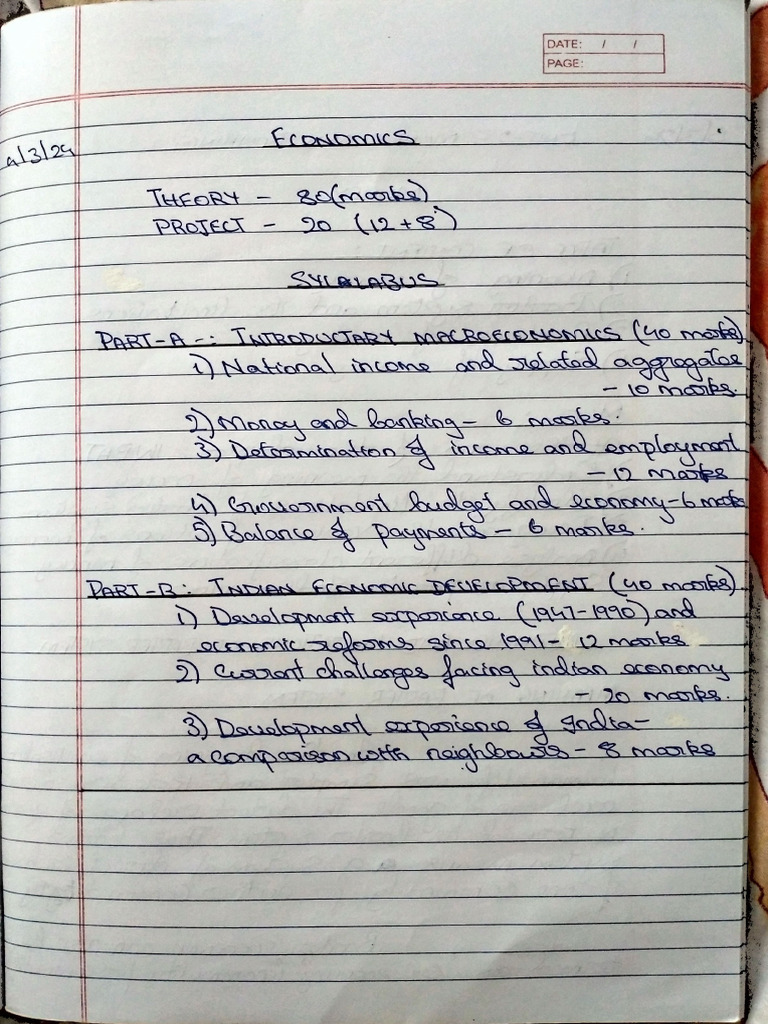 DATE: / /
PAGE:
ECONOMICS
4/3/24
THEORY - 80(marks)
PROJECT - 20 (12+8)
SYLALABUS
PART-A -: INTRODUCTARY MACROECONOMICS (40 marks)
1) National income and related aggregates
- 10 marks.
2) Money and banking - 6 marks.
3) Determination of income and employment
- 12 marks
4) Government budget and economy - 6 marks
5) Balance of payments - 6 marks.
PART-B: INDIAN ECONOMIC DEVELOPMENT (40 marks)
1) Development experience (1947-1990) and
economic reforms since 1991 - 12 marks
2) Current challenges facing indian economy
- 20 marks.
3) Development experience of India -
a comparison with neighbours - 8 marks